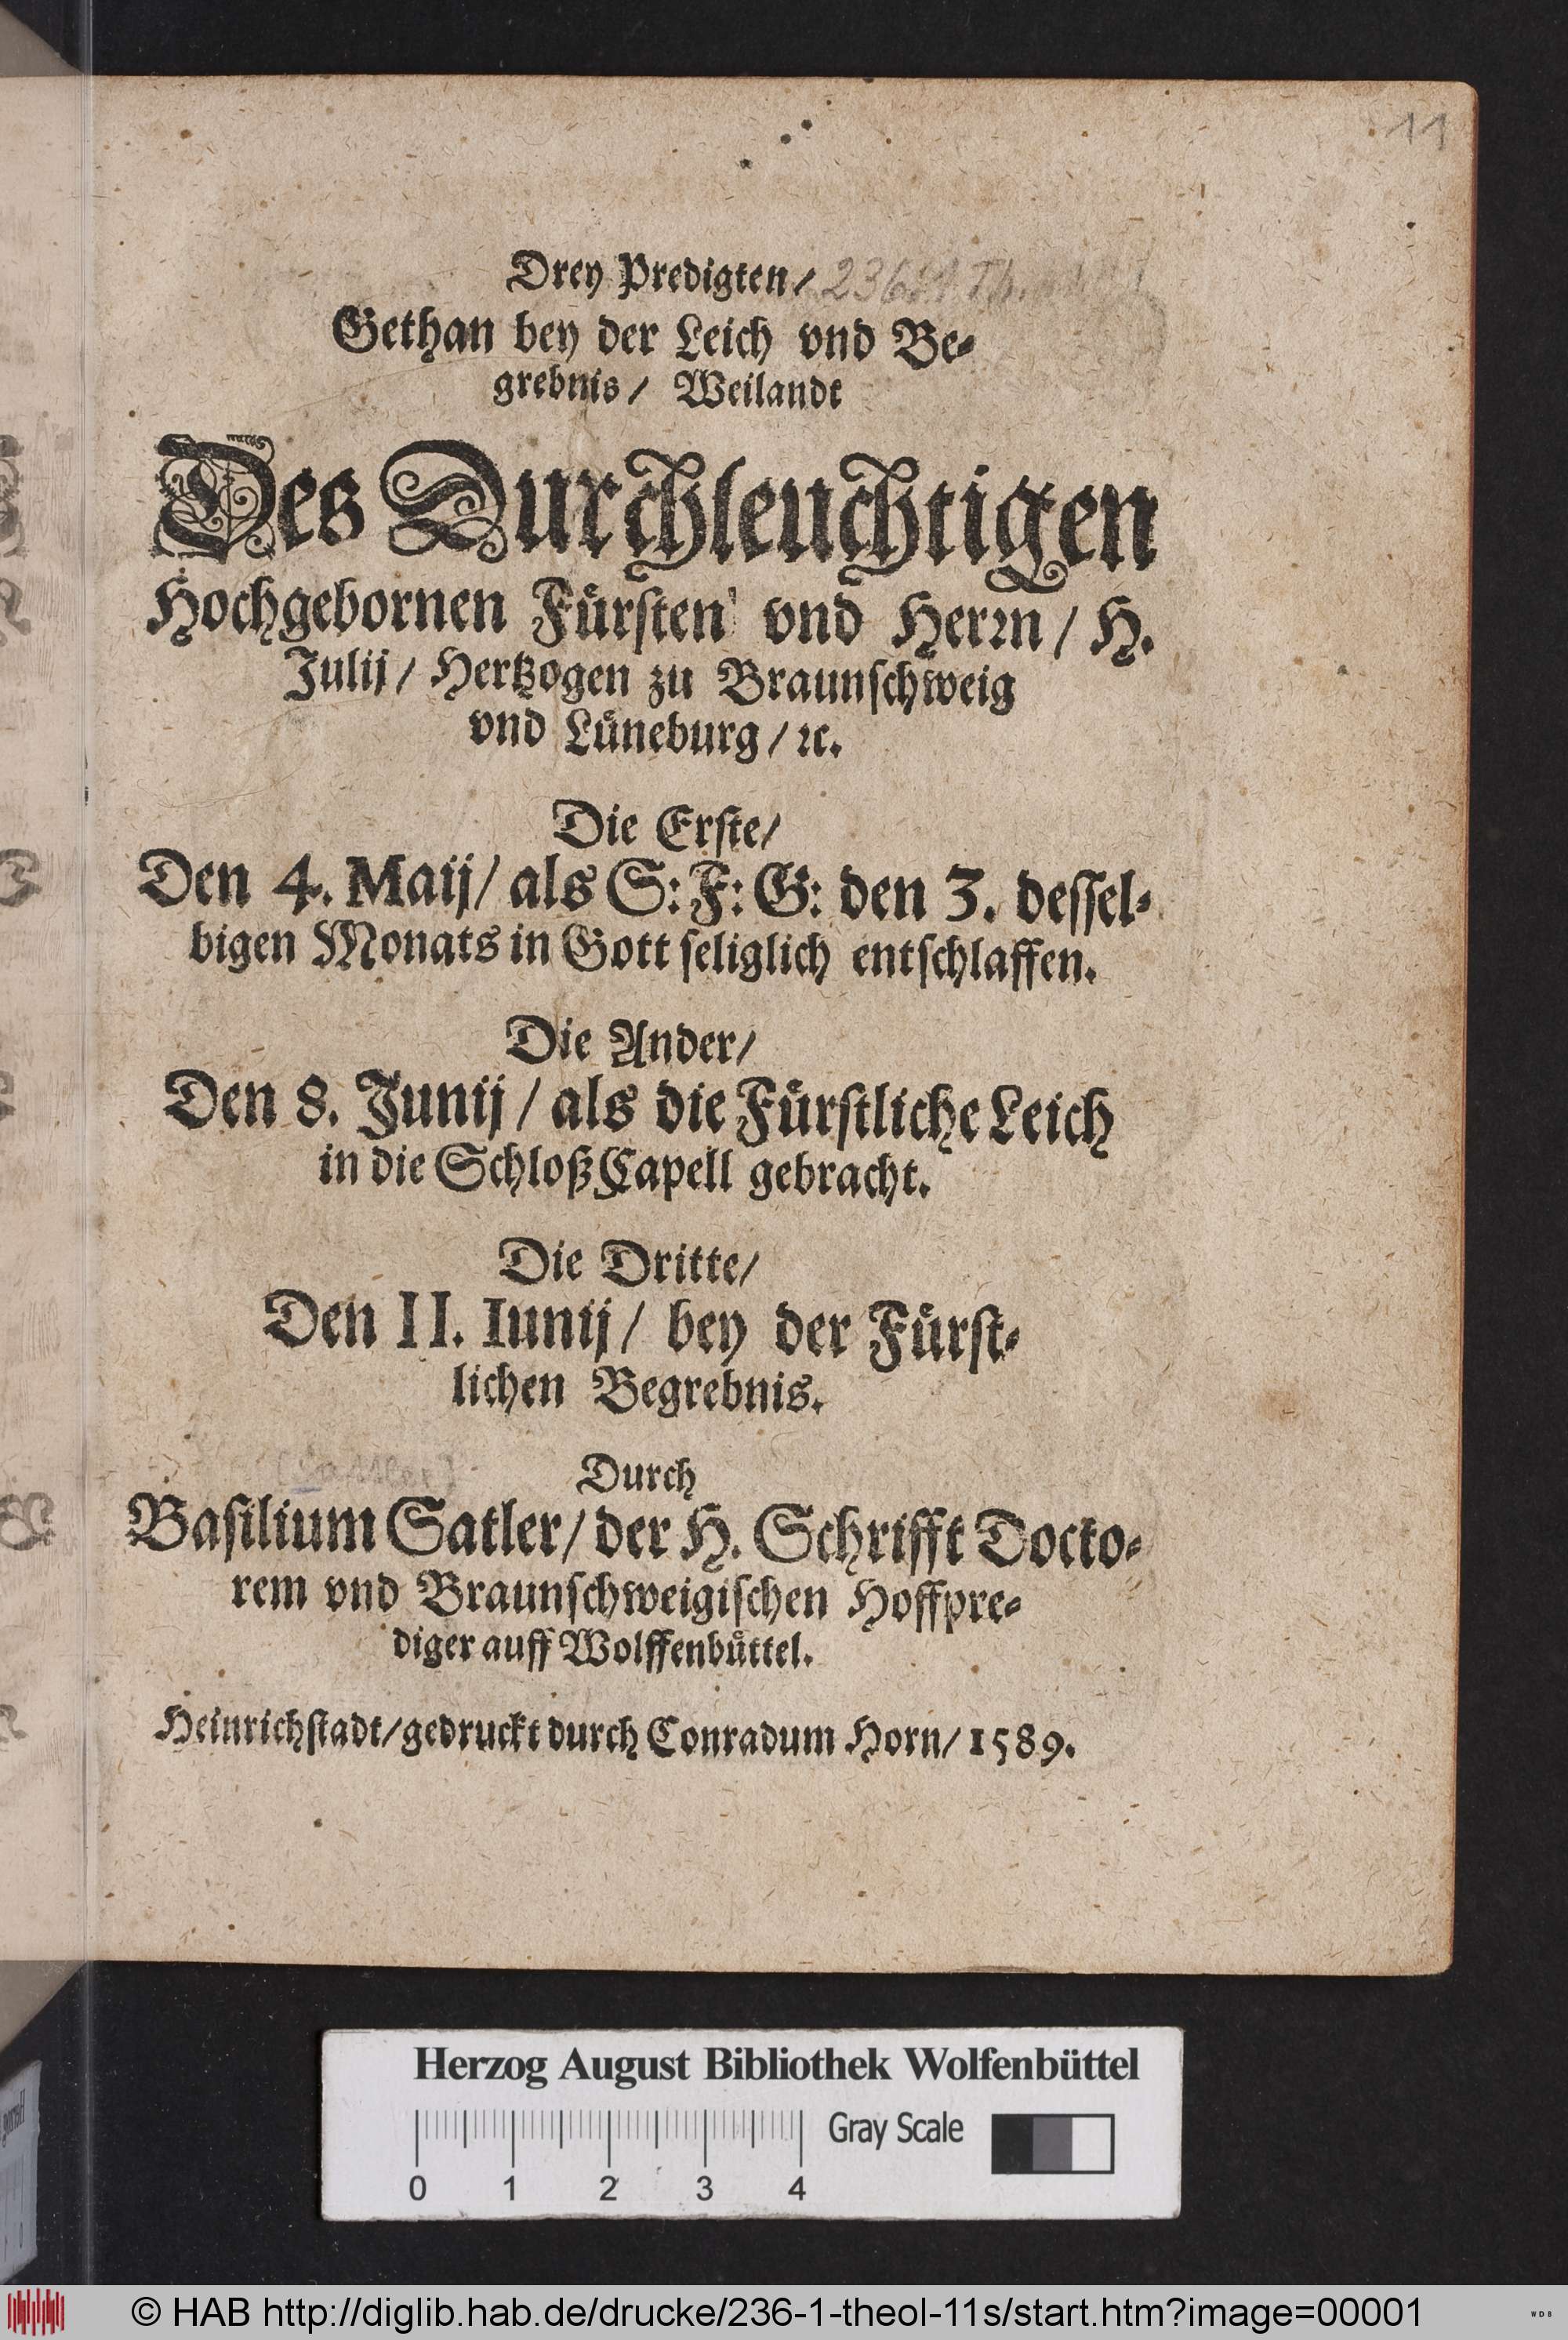 11
Drey Predigten/
Gethan bey der Leich vnd Be-
grebnis/ Weilandt
Des Durchleuchtigen
Hochgebornen Fürsten vnd Herrn/ H.
Julij/ Hertzogen zu Braunschweig
vnd Lüneburg/ ꝛc.
Die Erste/
Den 4. Maij/ als S: F: G: den 3. dessel-
bigen Monats in Gott seliglich entschlaffen.
Die Ander/
Den 8. Junij/ als die Fürstliche Leich
in die Schloß Capell gebracht.
Die Dritte/
Den II. Iunij/ bey der Fürst-
lichen Begrebnis.
Durch
Basilium Satler/ der H. Schrifft Docto-
rem vnd Braunschweigischen Hoffpre-
diger auff Wolffenbüttel.
Heinrichstadt/ gedruckt durch Conradum Horn/ 1589.
Herzog August Bibliothek Wolfenbüttel
Gray Scale
0 1 2 3 4
© HAB http://diglib.hab.de/drucke/236-1-theol-11s/start.htm?image=00001